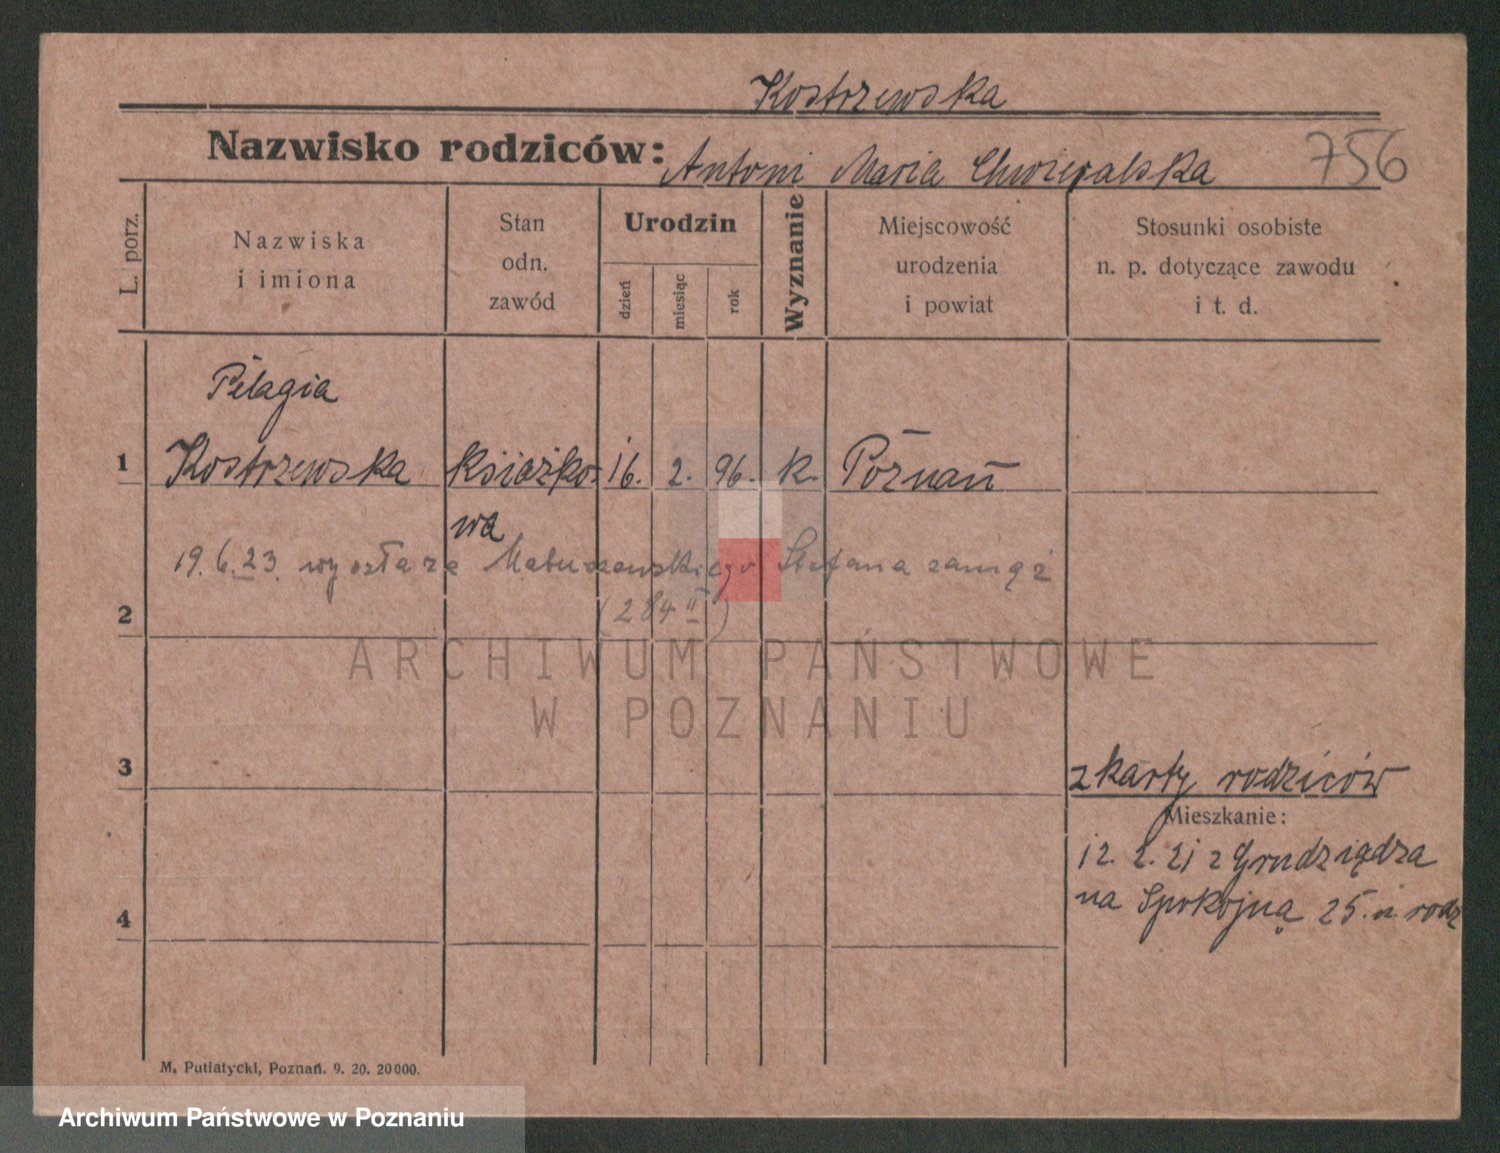 Kostrzewska
Nazwisko rodziców: Antoni Maria Chwiepalska 756
L. porz.
Nazwiska
i imiona
Stan
odn.
zawód
Urodzin
dzień
miesiąc
rok
Wyznanie
Miejscowość
urodzenia
i powiat
Stosunki osobiste
n. p. dotyczące zawodu
i t. d.
Pelagia
1 Kostrzewska książko- 16. 2. 96. k. Poznań
wa
19.6.23. wyszła za Matuszewskiego Stefana zamąż
(284 II)
2
ARCHIWUM PAŃSTWOWE
W POZNANIU
3
z karty rodziców
Mieszkanie:
12. 2. 21 z Grudziądza
na Spokojną 25. u. rodz
4
M. Putiatycki, Poznań. 9. 20. 20000.
Archiwum Państwowe w Poznaniu